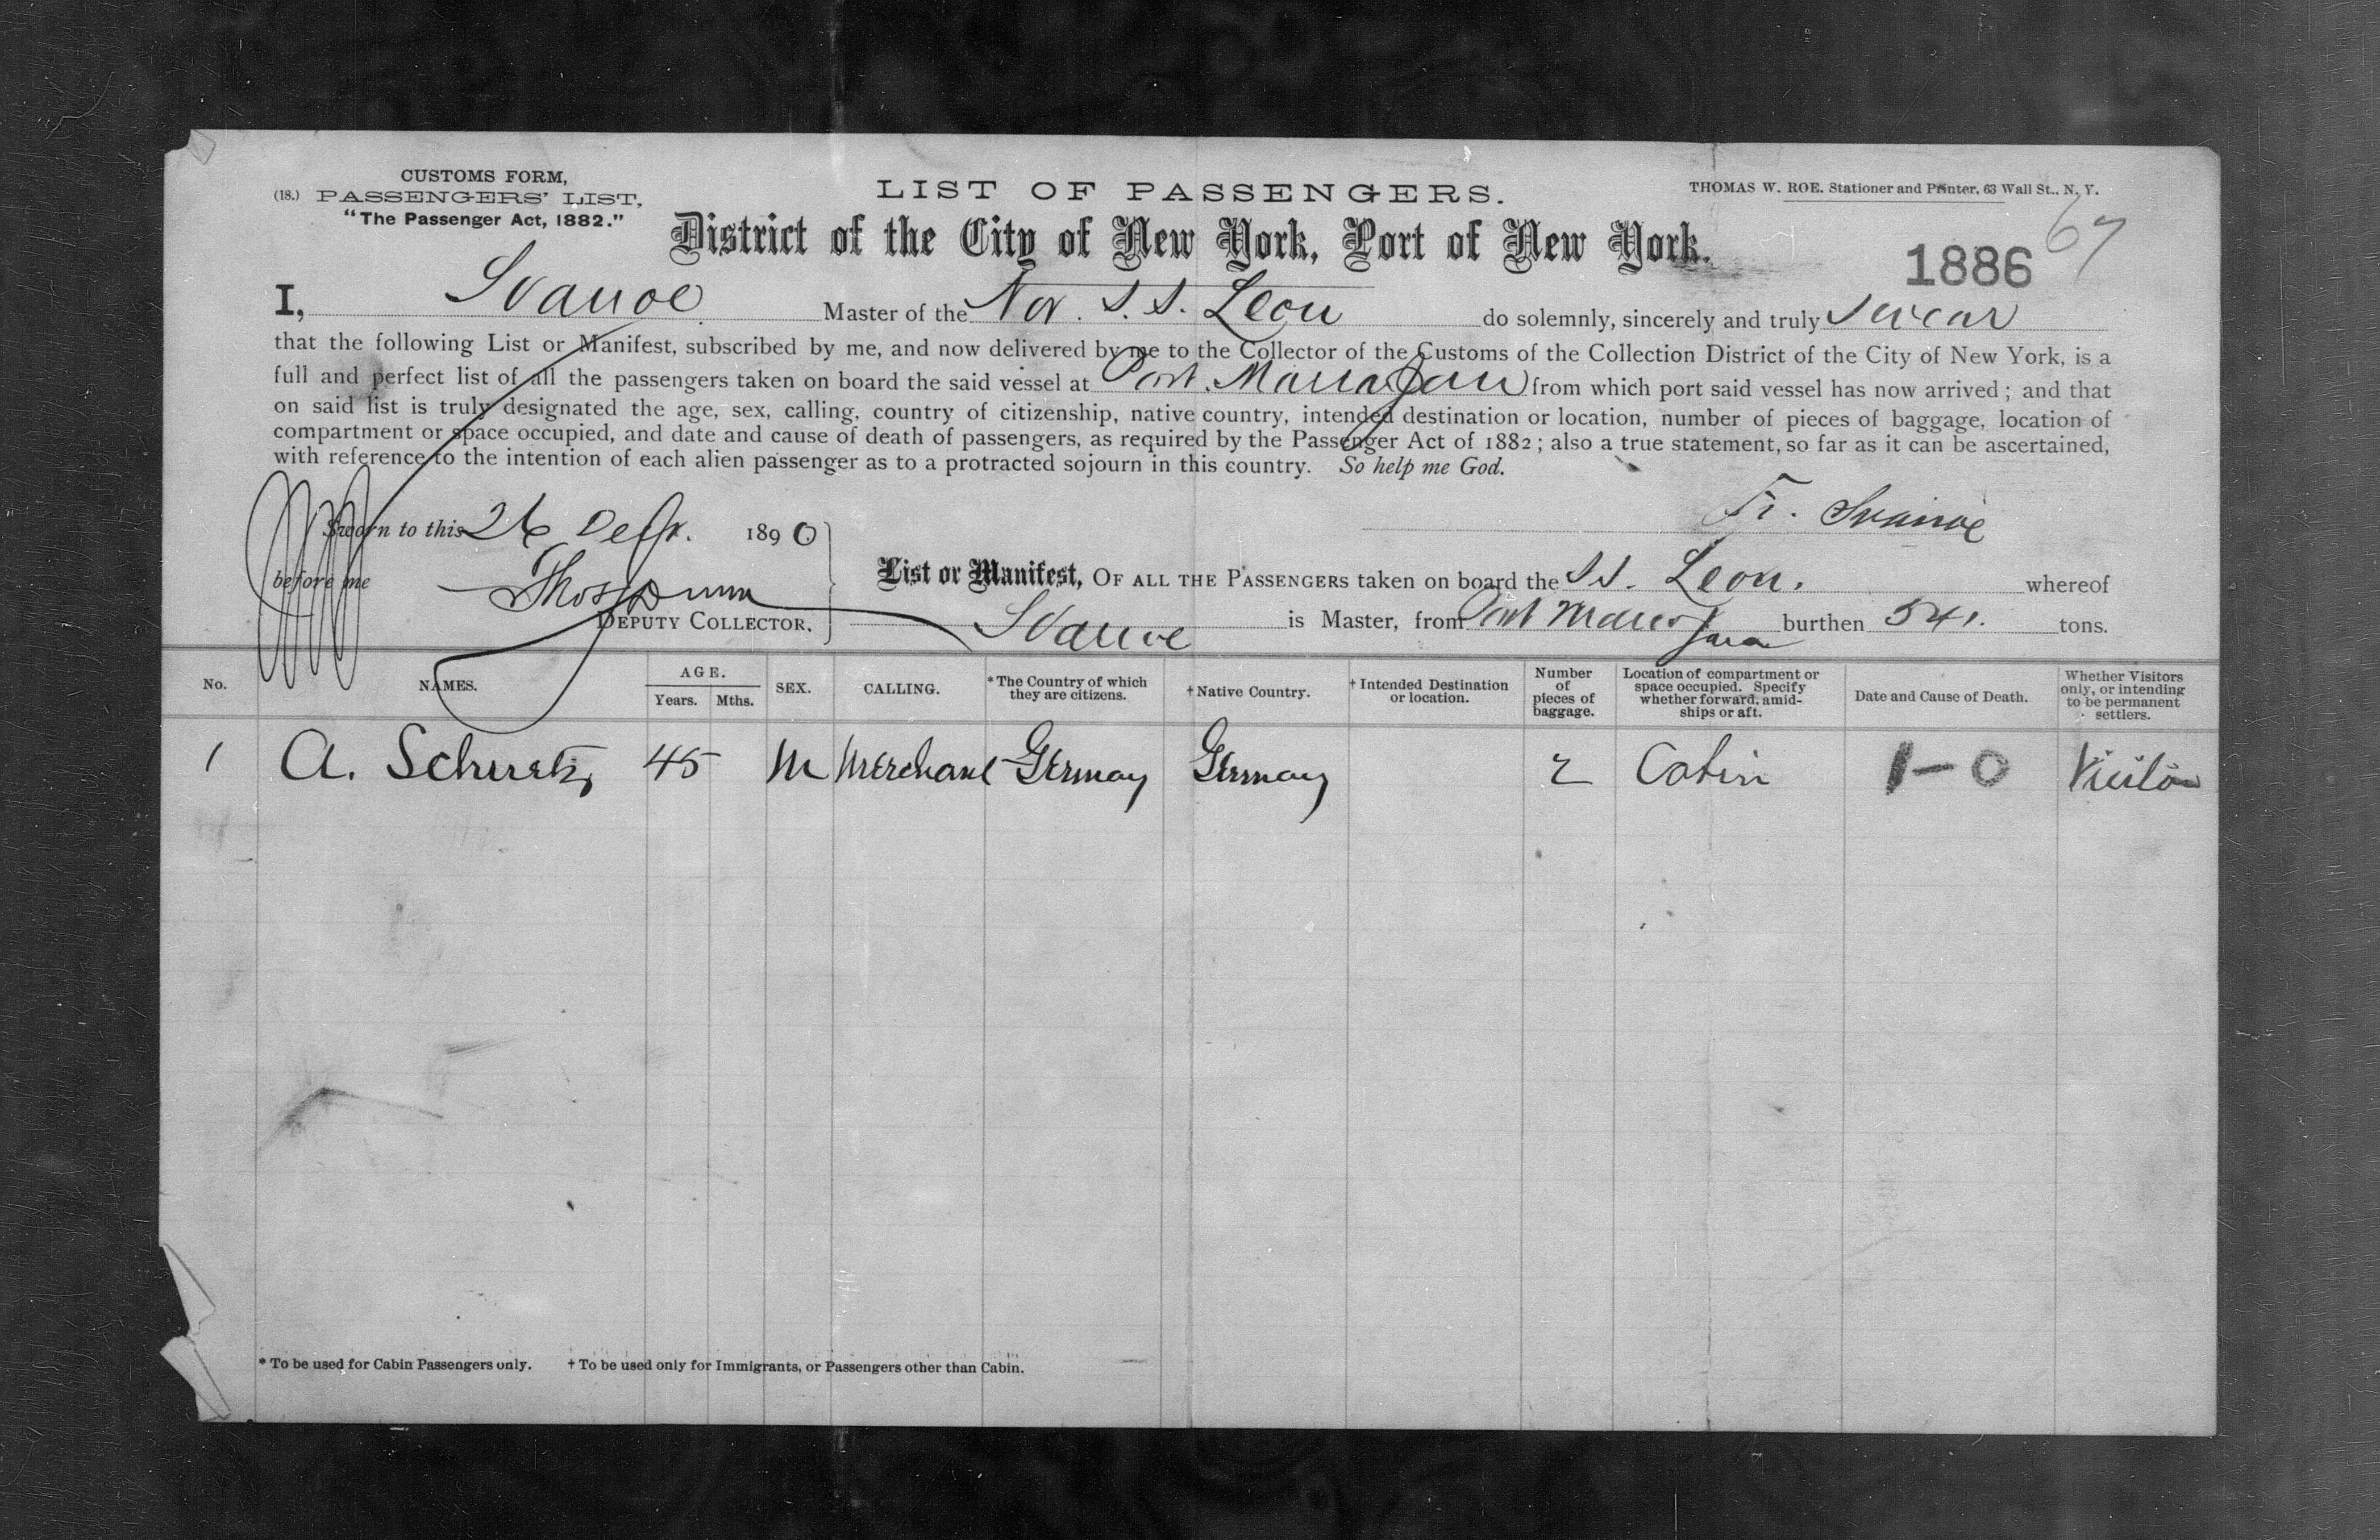 CUSTOMS FORM,
(18.) PASSENGERS' LIST,
"The Passenger Act, 1882."
LIST OF PASSENGERS.
THOMAS W. ROE. Stationer and Printer, 63 Wall St., N. Y.
District of the City of New York, Port of New York.
1886 67
I, Svanoe Master of the Nor. S. S. Leon do solemnly, sincerely and truly swear
that the following List or Manifest, subscribed by me, and now delivered by me to the Collector of the Customs of the Collection District of the City of New York, is a
full and perfect list of all the passengers taken on board the said vessel at Port from which port said vessel has now arrived; and that
on said list is truly designated the age, sex, calling, country of citizenship, native country, intended destination or location, number of pieces of baggage, location of
compartment or space occupied, and date and cause of death of passengers, as required by the Passenger Act of 1882; also a true statement, so far as it can be ascertained,
with reference to the intention of each alien passenger as to a protracted sojourn in this country. So help me God.
Fr. Svanoe
Sworn to this 26 1890
before me Thos Dunn
DEPUTY COLLECTOR.
List or Manifest, OF ALL THE PASSENGERS taken on board the SS. Leon. whereof
Svanoe is Master, from Port burthen 541. tons.
No. NAMES. AGE. Years. Mths. SEX. CALLING. *The Country of which they are citizens. †Native Country. †Intended Destination or location. Number of pieces of baggage. Location of compartment or space occupied. Specify whether forward, amidships or aft. Date and Cause of Death. Whether Visitors only, or intending to be permanent settlers.
1 A. 45 M Merchant Germay Germay 2 Cabin 1-0 Visitor
* To be used for Cabin Passengers only. † To be used only for Immigrants, or Passengers other than Cabin.